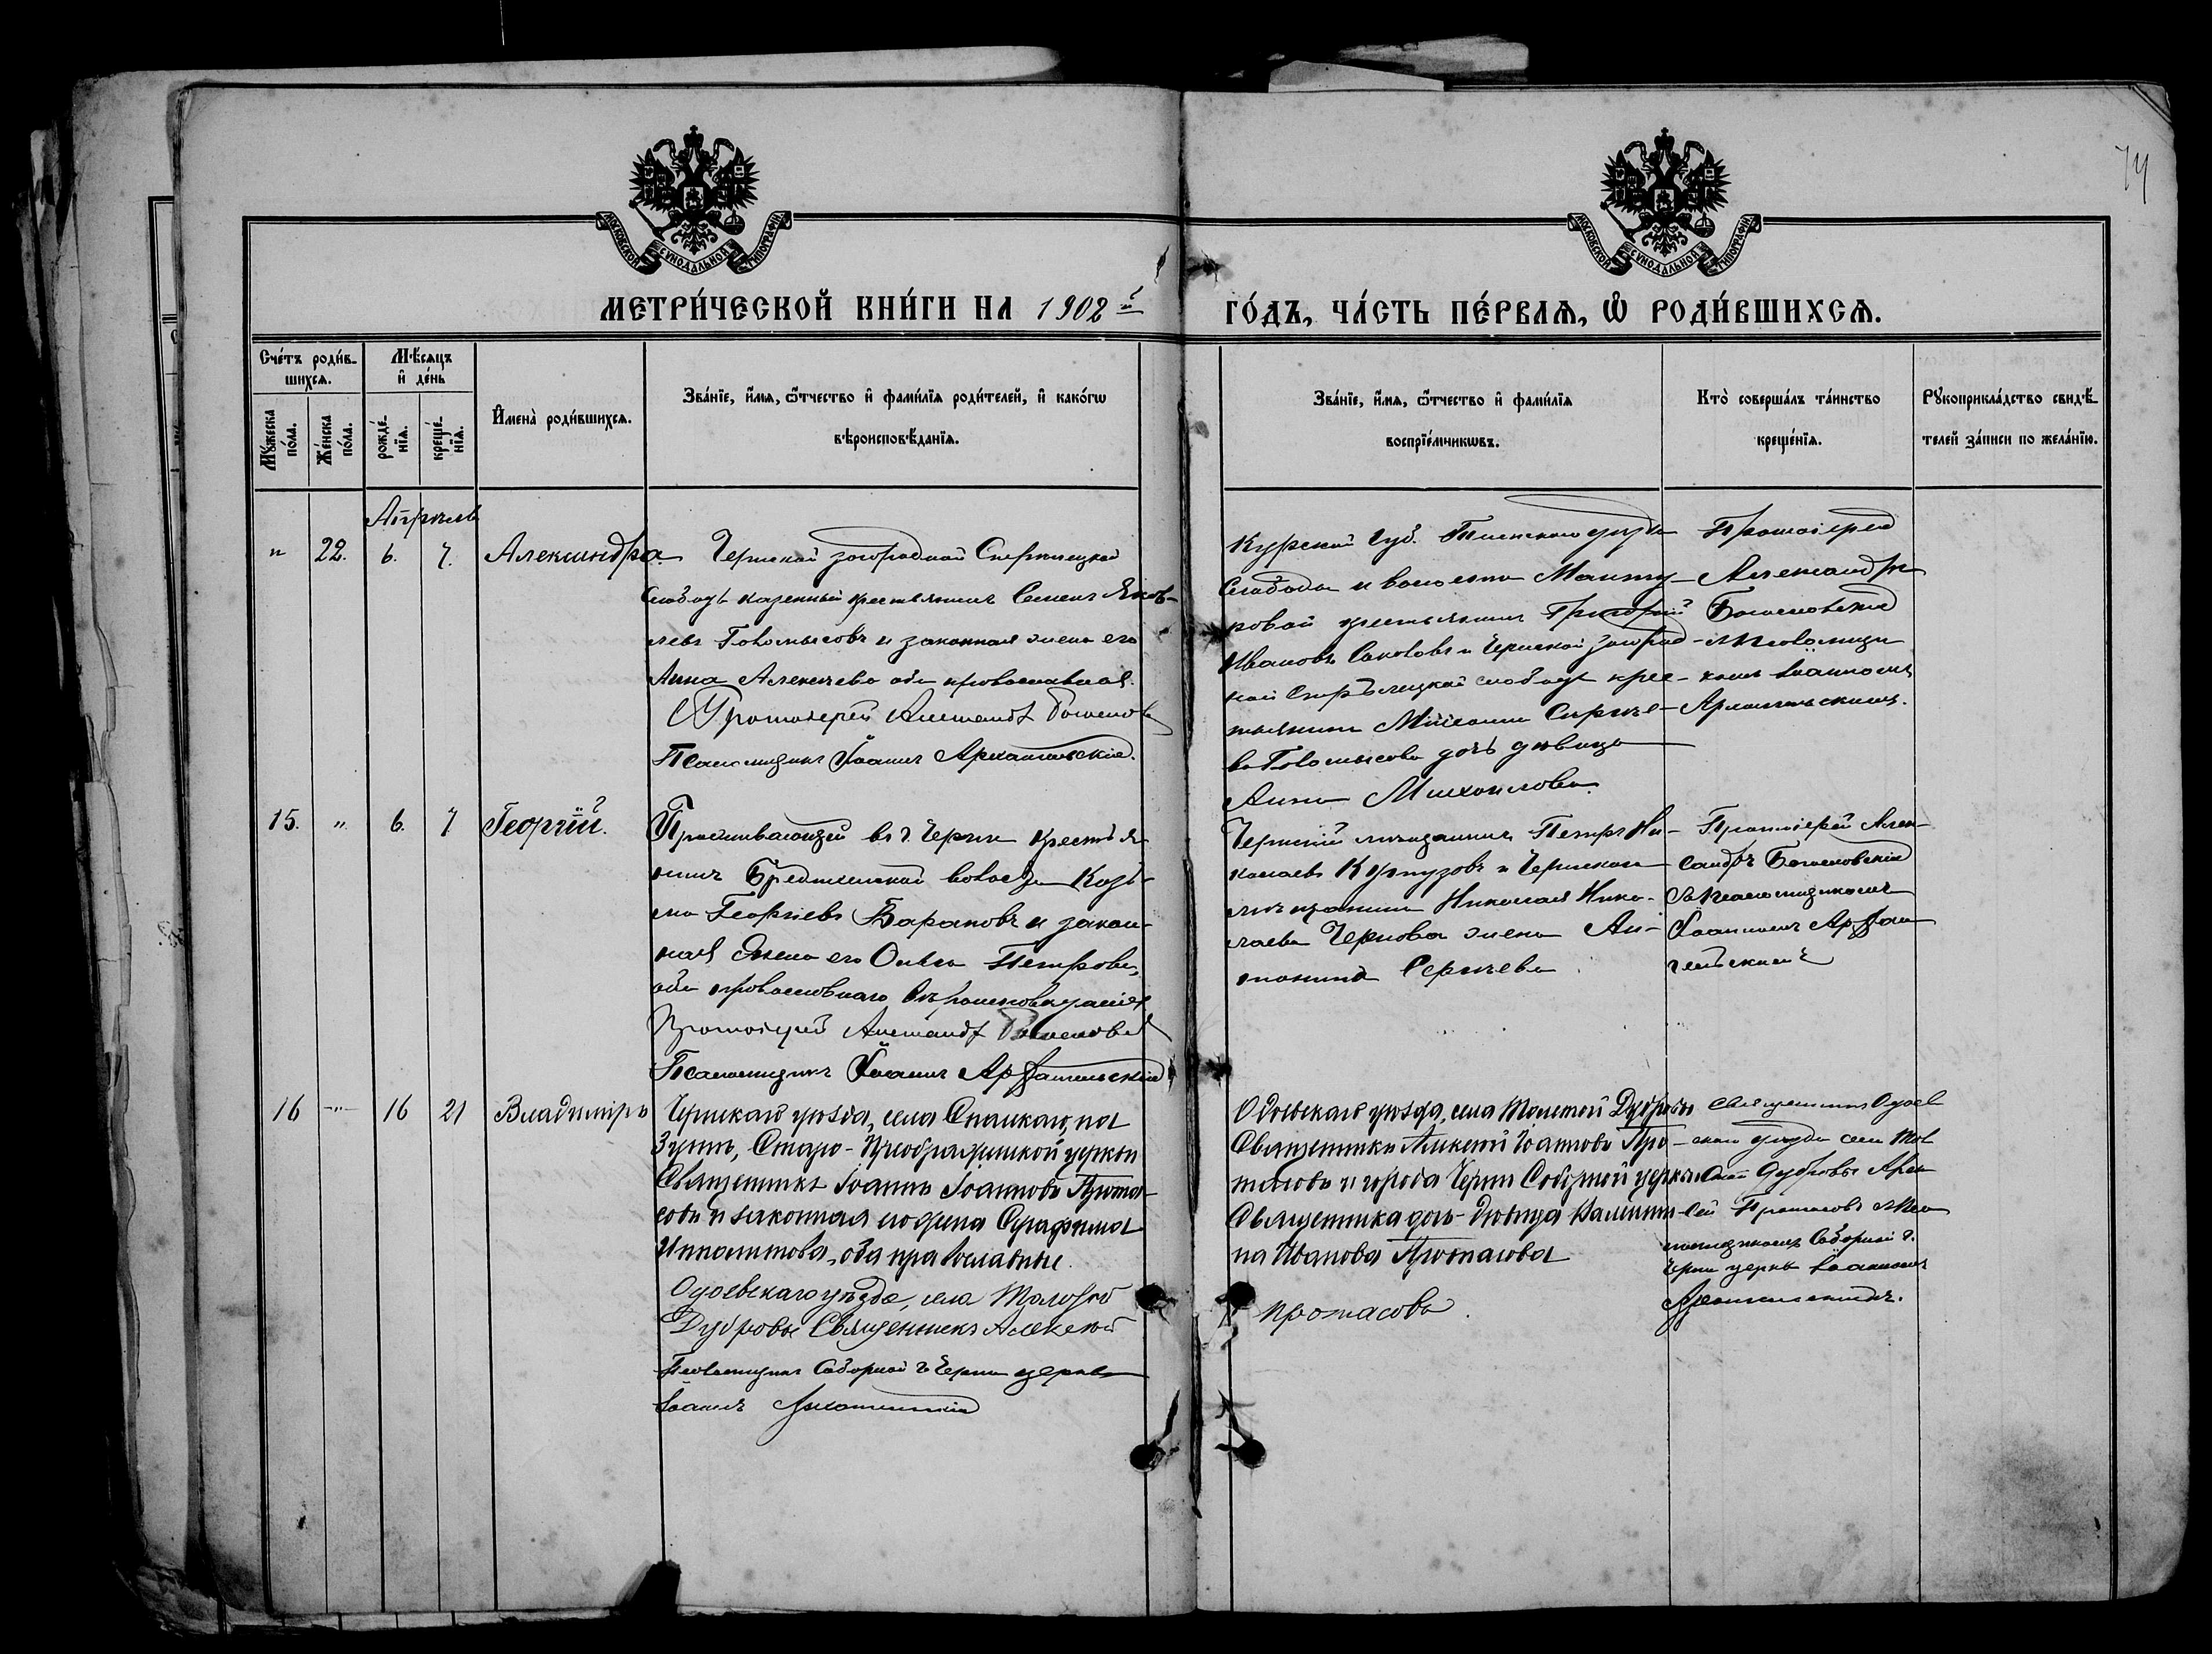 74
МОСКОВСКОЙ СУНОДАЛЬНОЙ ТИПОГРАФІИ
МОСКОВСКОЙ СУНОДАЛЬНОЙ ТИПОГРАФІИ
МЕТРИ́ЧЕСКОЙ КНИ́ГИ НА 1902й ГО́ДЪ, ЧА́СТЬ ПЕ́РВАѦ, Ѡ РОДИ́ВШИХСѦ.
Сче́тъ роди́вшихсѧ.
Мꙋ́жеска по́ла.
Же́нска по́ла.
Мѣ́сѧцъ и де́нь
рожде́нїѧ.
креще́нїѧ.
И҆мена̀ роди́вшихсѧ.
Зва́нїе, и҆́мѧ, ѻ҆́тчество и҆ фами́лїѧ роди́телей, и҆ како́гѡ
вѣроисповѣ́данїѧ.
Зва́нїе, и҆́мѧ, ѻ҆́тчество и҆ фами́лїѧ
воспрїе́мникѡвъ.
Кто̀ соверша́лъ та́инство
креще́нїѧ.
Рꙋкоприкла́дство свидѣ́-
телей за́писи по жела́нїю.
Апрѣль
" 22. 6. 7. Александра.
Чернской загородной Стрѣлецкой
Слободы казенный крестьянинъ Семенъ Яков-
левъ Головысовъ и законная жена его
Анна Алексѣева оба православные.
Протоіерей Александръ
Псаломщикъ Іоаннъ Архангельскій.
Курской губ. Тимскаго уѣзда
Слободы и волости Манту-
ровой крестьянинъ Григорій
Ивановъ Соколовъ и Чернской загород-
ной Стрѣлецкой слободы крес-
тьянина Михаила Сергѣе-
ва дочь дѣвица
Анна Михаилова.
Протоіерей
Александръ
Богословскій
съ псаломщи-
комъ Іоанномъ
Архангельскимъ.
15. " 6. 7 Георгій.
Проживающій въ г. Черни крестья-
нинъ волости Козь-
ма Георгіевъ Барановъ и закон-
ная жена его Ольга Петрова,
оба православнаго вѣроисповѣданія
Протоіерей Александръ
Псаломщикъ Іоаннъ Архангельскій
Чернскій мѣщанинъ Петръ Ни-
колаевъ Картузовъ и Чернскаго
мѣщанина Николая Нико-
лаева Чернова жена Ан-
тонина Сергѣева
Протоіерей Алек-
сандръ Богословскій
съ псаломщикомъ
Іоанномъ Архан-
гельскимъ
16 -"- 16 21 Владиміръ
Чернскаго уѣзда, села Спасскаго, на
Зушѣ, Старо-Преображенской церкви
Священникъ Іоаннъ Іоанновъ Прота-
совъ и законная его жена Серафима
оба православные.
Одоевскаго уѣзда, села Толстой
Дубровы Священникъ Алексѣй
Псаломщикъ Соборной г. Черни церкви
Іоаннъ Архангельскій
Одоевскаго уѣзда, села Толстой Дубровы
Священникъ Алексѣй Іоанновъ Про-
тасовъ и города Черни Соборной церкви
Священника дочь-дѣвица Валенти-
на Иванова Протасова
Протасовъ.
Священникъ Одоев-
скаго уѣзда села Тол-
стой Дубровы Алек-
сѣй Протасовъ съ Пса-
ломщикомъ Соборной г.
Черни церкви Іоанномъ
Архангельскимъ.